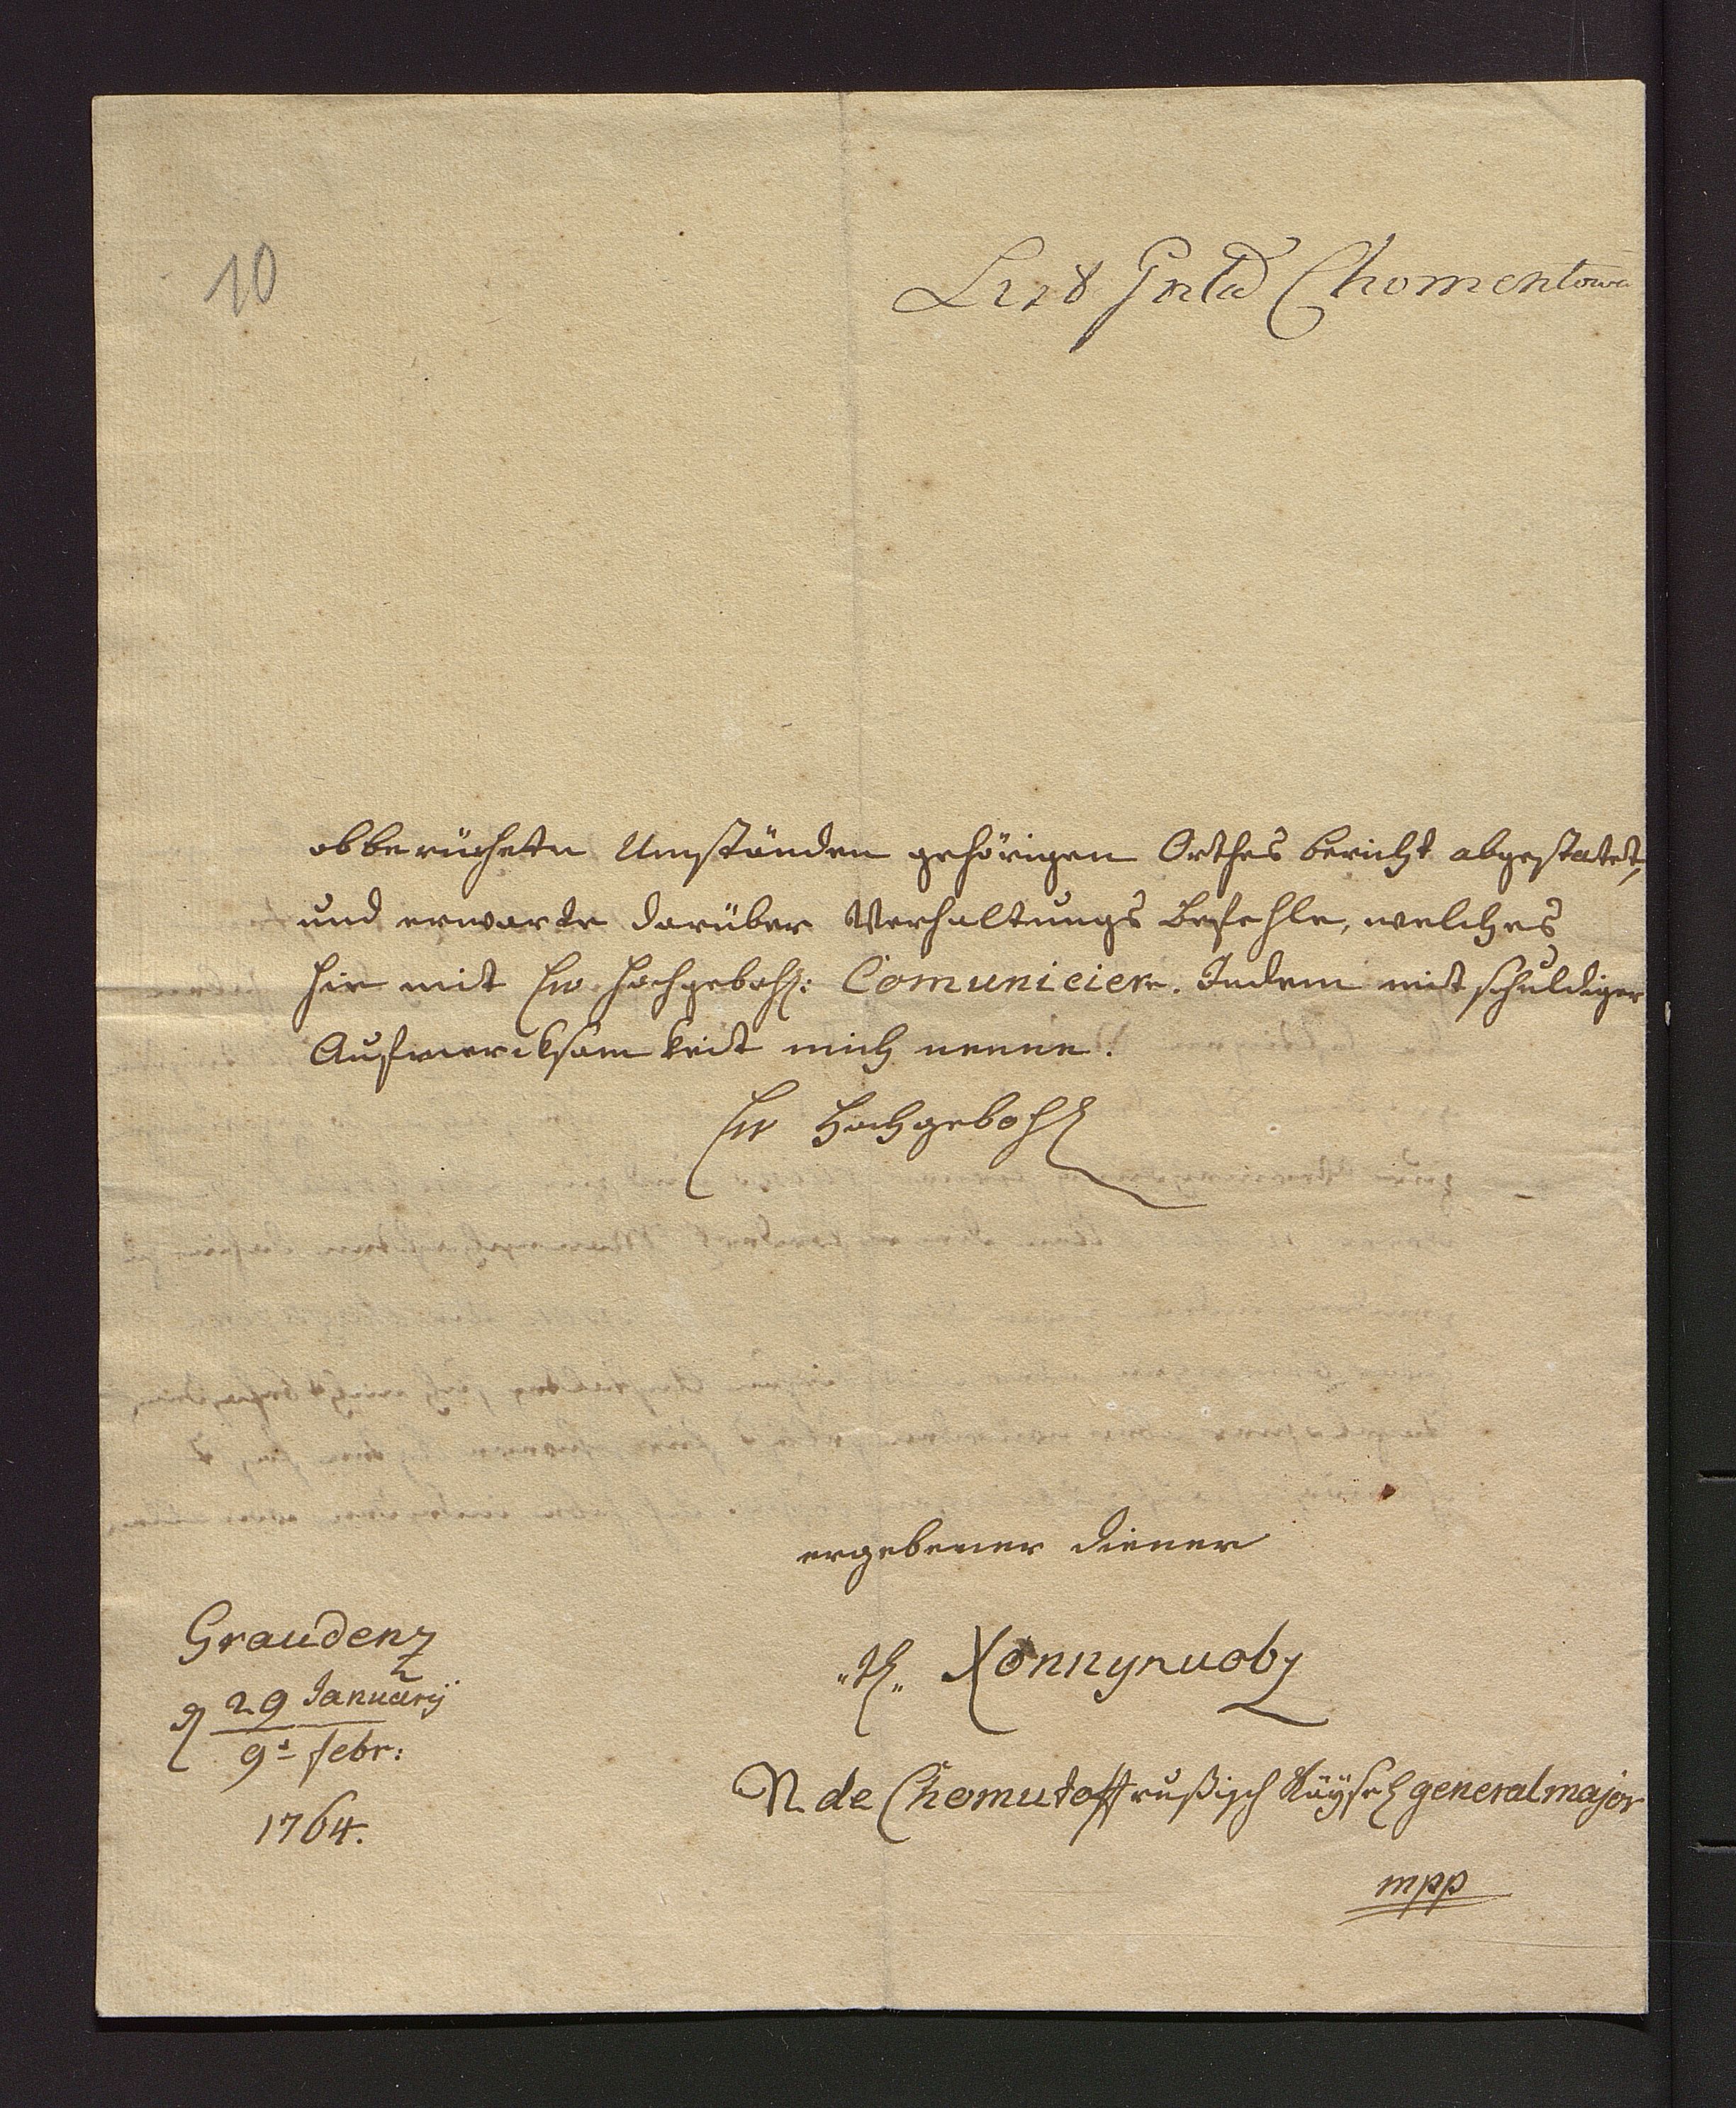 10
List Gnla Chomentowa
obberührten Umständen gehörigen Orthes bericht abgestatet,
und erwarte darüber Verhaltungs Befehle, welches
hir mit Ew Hochgebohr: Comunicier. Indem mit schuldiger
Aufmercksamkeit mich nenne.
Ew Hochgebohr
ergebener diener
Graudenz
d 29 Januarij
9t febr:
1764.
N de Chomutoff rußisch Käyserl general major
mpp